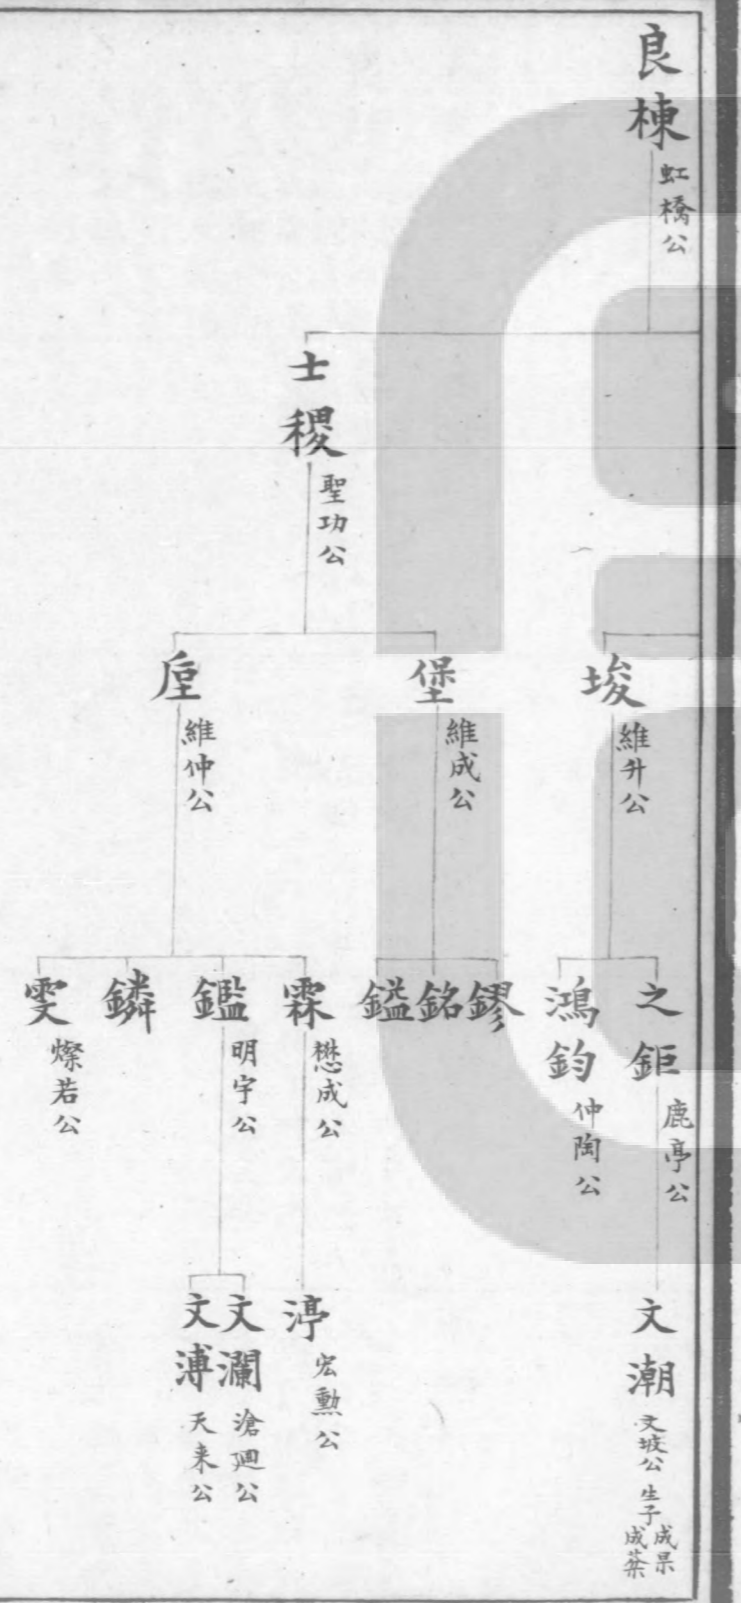 良棟 虹橋公
士稷 聖功公
埈 維升公
堡 維成公
垕 維仲公
之鉅 鹿亭公
鴻鈞 仲陶公
鏐
銘
鎰
霖 懋成公
鑑 明宇公
鏻
雯 燦若公
文潮 文坡公 生子 成杲 成葉
渟 宏勳公
文瀾 滄迴公
文溥 天来公